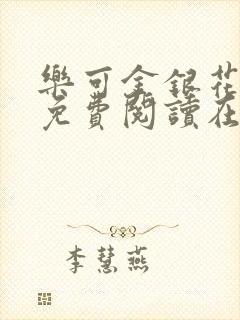 樂可金銀花
免費閱讀在
李慧燕